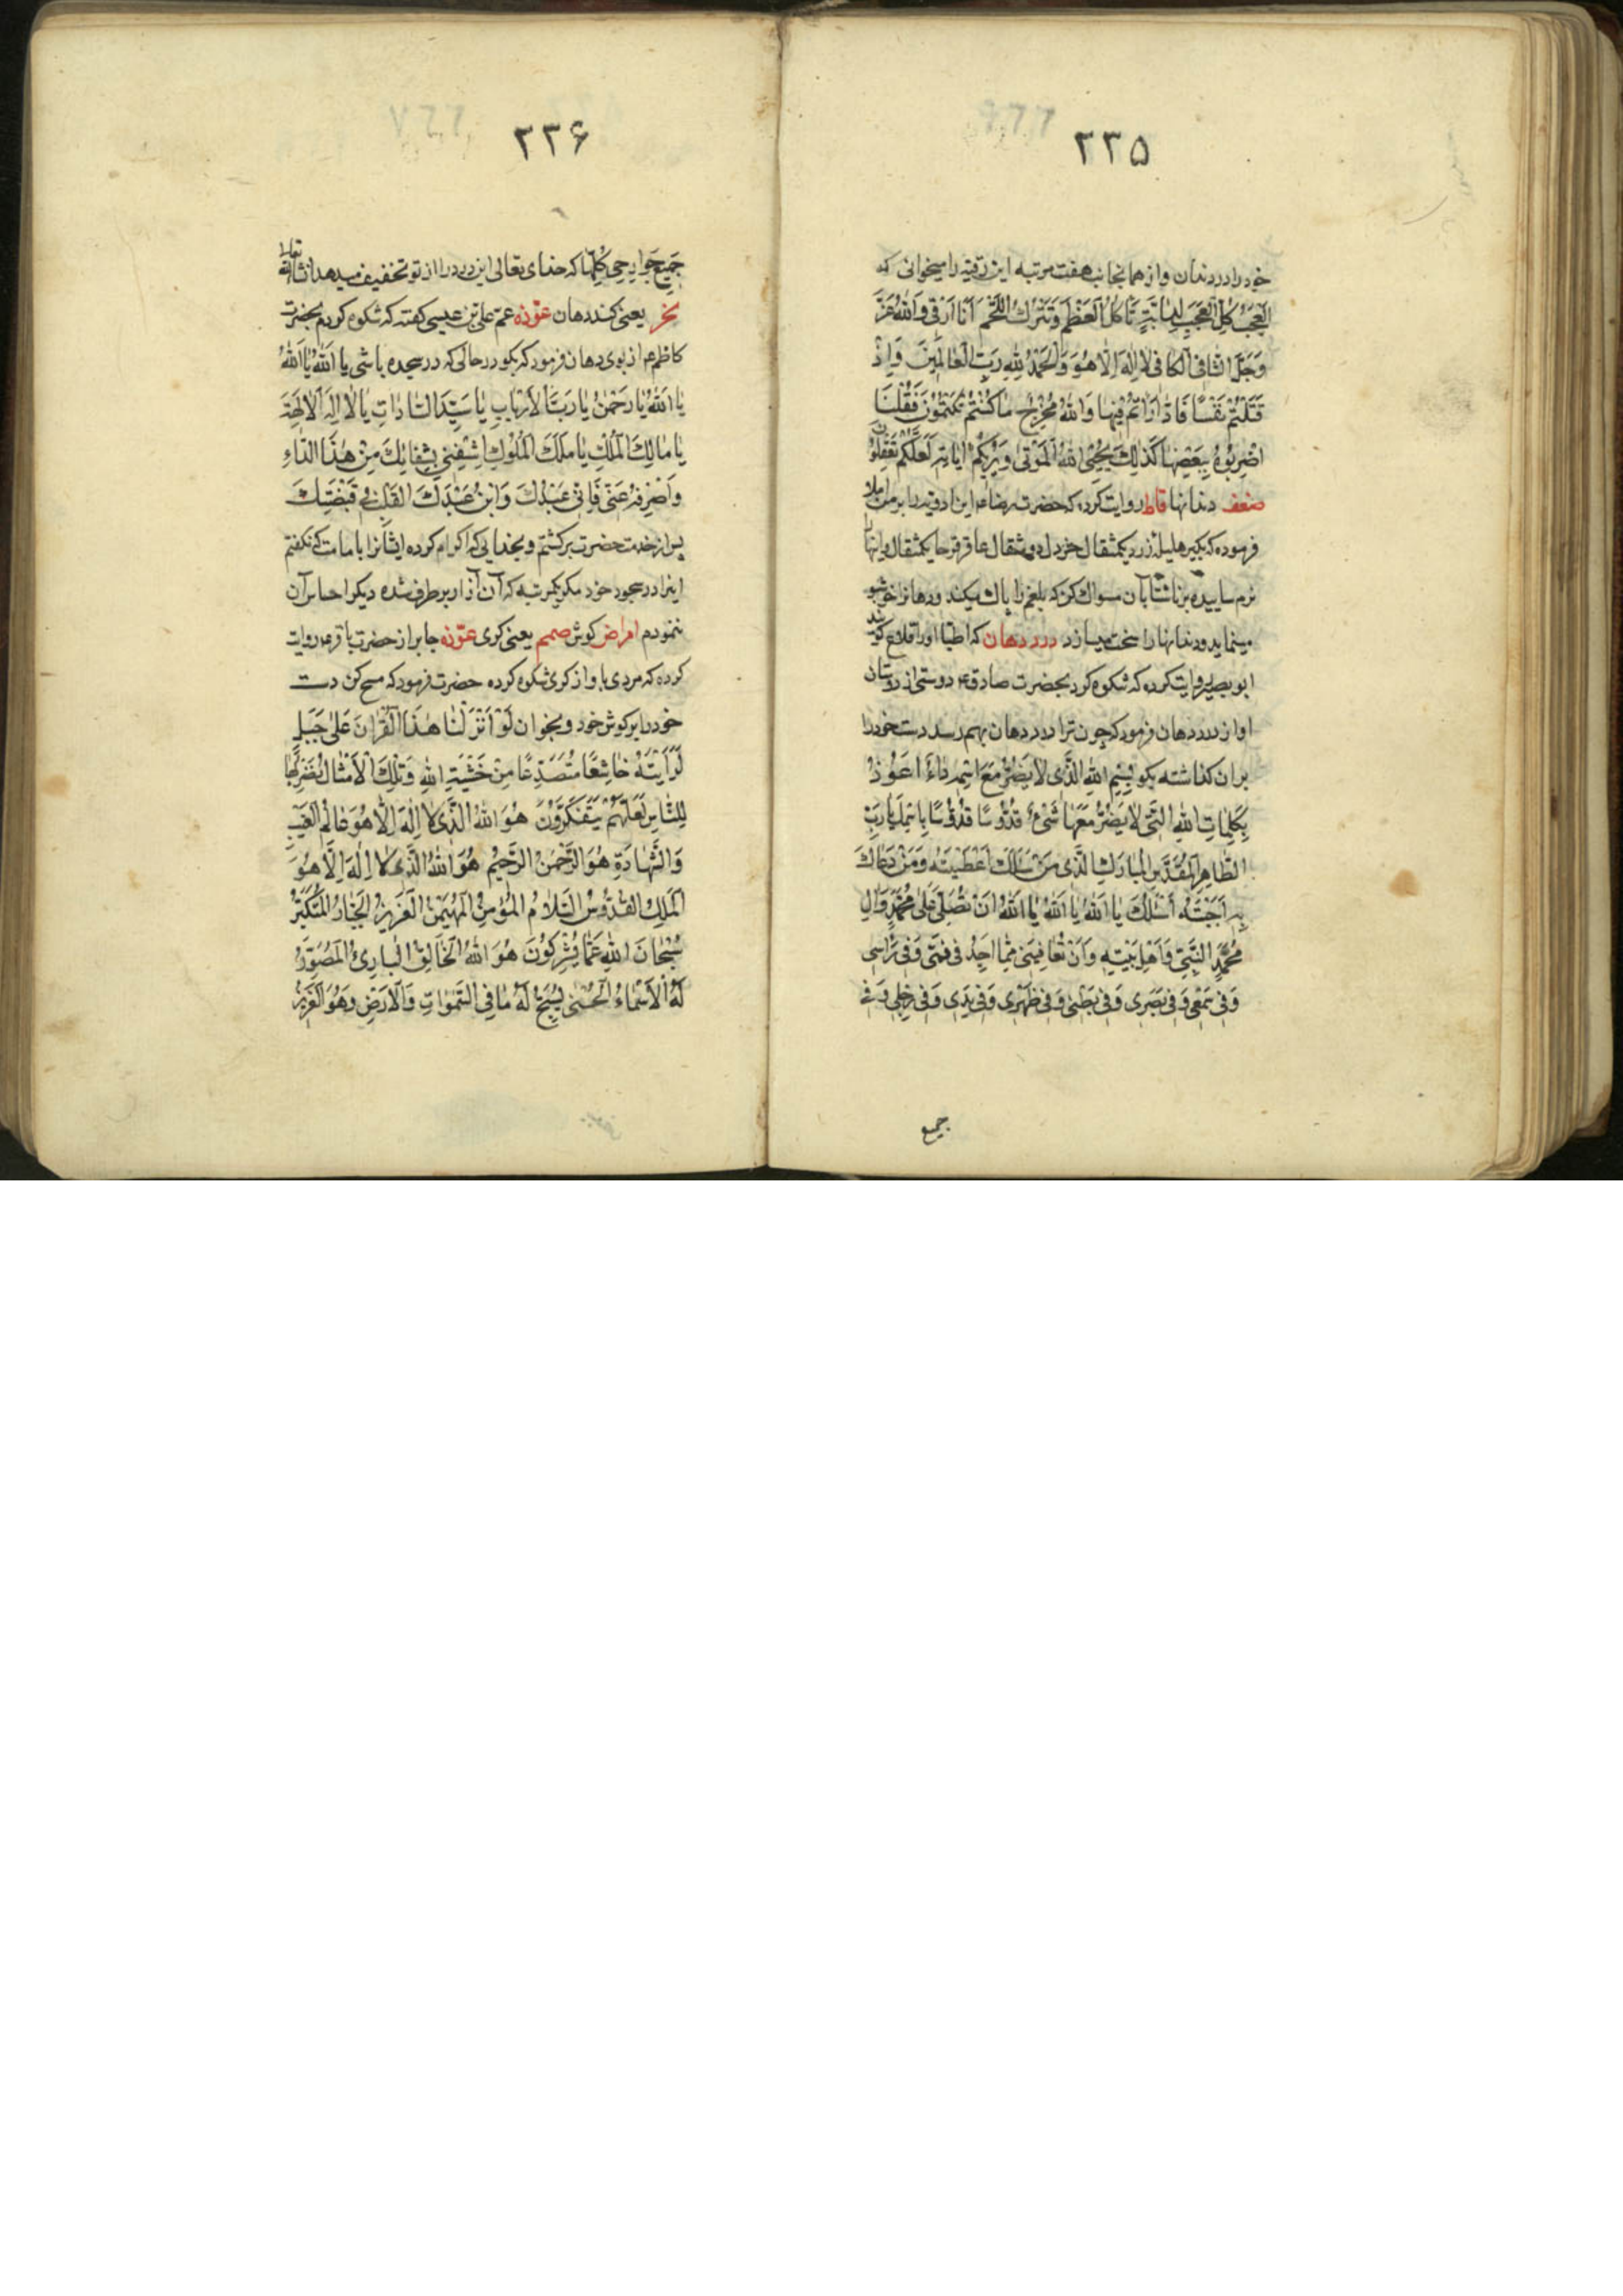 ۲۳۵
خود را در دندان و از همانجانب هفت مرتبه این رقیه را میخوانی که
اَلْعَجَبُ كُلُّ الْعَجَبِ لِدابَّةٍ تَأْكُلُ الْعَظْمَ وَتَتْرُكُ اللَّحْمَ اَنَا اَرْقي وَاللهُ عَزَّ
وَجَلَّ الشّافِي الْكافي لا اِلهَ اِلاّ هُوَ وَالْحَمْدُ لِلّهِ رَبِّ الْعالَمينَ وَاِذْ
قَتَلْتُمْ نَفْسًا فَادّارَاْتُمْ فيها وَاللهُ مُخْرِجٌ ما كُنْتُمْ تَكْتُمُونَ فَقُلْنَا
اضْرِبُوهُ بِبَعْضِها كَذلِكَ يُحْيِي اللهُ الْمَوْتى وَيُريكُمْ اياتِه لَعَلَّكُمْ تَعْقِلُونَ
ضعف دندانها روایت کرده که حضرت رضا ع این ادویه را بر من املا
فرموده که بگیر هلیله زرد یکمثقال خردل دو مثقال عاقرقرحا یکمثقال و اینها را
نرم ساییده بناشتا بآن مسواک کن که بلغم را پاک میکند و دهانرا خوشبو
مینماید و دندانها را سخت میسازد درد دهان که اطبا او را قلاع گویند
ابو بصیر روایت کرده که شکوه کرد بحضرت صادق ع دوستی از دوستان
او از درد دهان فرمود که چون ترا درد دهان بهم رسد دست خود را
بر آن گذاشته بگو بِسْمِ اللهِ الَّذي لا يَضُرُّ مَعَ اسْمِه داءٌ اَعُوذُ
بِكَلِماتِ اللهِ الَّتي لا يَضُرُّ مَعَها شَيْءٌ قُدُّوسًا قُدُّوسًا بِاسْمِكَ يا رَبِّ
الطّاهِرِ الْمُقَدَّسِ الْمُبارَكِ الَّذي مَنْ سَئَلَكَ اَعْطَيْتَهُ وَمَنْ دَعاكَ
بِه اَجَبْتَهُ اَسْئَلُكَ يا اَللهُ يا اَللهُ يا اَللهُ اَنْ تُصَلِّيَ عَلى مُحَمَّدٍ وَالِ
مُحَمَّدٍ النَّبِيِّ وَاَهْلِ بَيْتِه وَاَنْ تُعافِيَني مِمّا اَجِدُ في فَمي وَفي رَاْسي
وَفي سَمْعي وَفي بَصَري وَفي بَطْني وَفي ظَهْري وَفي يَدي وَفي رِجْلي وَفي
جمیع
۲۳۶
جَميعِ جَوارِحي كُلِّها که خدای تعالی این درد را از تو تخفیف میدهد انشاء الله تعالی
بخر یعنی گند دهان عوّذه عم علی بن عیسی گفته که شکوه کردم بحضرت
کاظم ع از بوی دهان فرمود که بگو در حالی که در سجده باشی يا اَللهُ يا اَللهُ
يا اَللهُ يا رَحْمنُ يا رَبَّ الْاَرْبابِ يا سَيِّدَ السّاداتِ يا اِلهَ الْالِهَةِ
يا مالِكَ الْمُلْكِ يا مَلِكَ الْمُلُوكِ اِشْفِني بِشِفائِكَ مِنْ هذَا الدّاءِ
وَاصْرِفْهُ عَنّي فَاِنّي عَبْدُكَ وَابْنُ عَبْدِكَ اَتَقَلَّبُ في قَبْضَتِكَ
پس از خدمت حضرت برگشتم و بخدایی که اکرام کرده ایشانرا بامامت که نگفتم
اینرا در سجود خود مگر یکمرتبه که آن آزار برطرف شده دیگر احساس آن
ننمودم امراض گوش صمم یعنی کری عوّذه جابر از حضرت باقر ع روایت
کرده که مردی باو از کری شکوه کرده حضرت فرمود که مسح کن دست
خود را بر گوش خود و بخوان لَوْ اَنْزَلْنا هذَا الْقُرْانَ عَلى جَبَلٍ
لَرَاَيْتَهُ خاشِعًا مُتَصَدِّعًا مِنْ خَشْيَةِ اللهِ وَتِلْكَ الْاَمْثالُ نَضْرِبُها
لِلنّاسِ لَعَلَّهُمْ يَتَفَكَّرُونَ هُوَ اللهُ الَّذي لا اِلهَ اِلاّ هُوَ عالِمُ الْغَيْبِ
وَالشَّهادَةِ هُوَ الرَّحْمنُ الرَّحيمُ هُوَ اللهُ الَّذي لا اِلهَ اِلاّ هُوَ
اَلْمَلِكُ الْقُدُّوسُ السَّلامُ الْمُؤْمِنُ الْمُهَيْمِنُ الْعَزيزُ الْجَبّارُ الْمُتَكَبِّرُ
سُبْحانَ اللهِ عَمّا يُشْرِكُونَ هُوَ اللهُ الْخالِقُ الْبارِئُ الْمُصَوِّرُ
لَهُ الْاَسْماءُ الْحُسْنى يُسَبِّحُ لَهُ ما فِي السَّمواتِ وَالْاَرْضِ وَهُوَ الْعَزيزُ